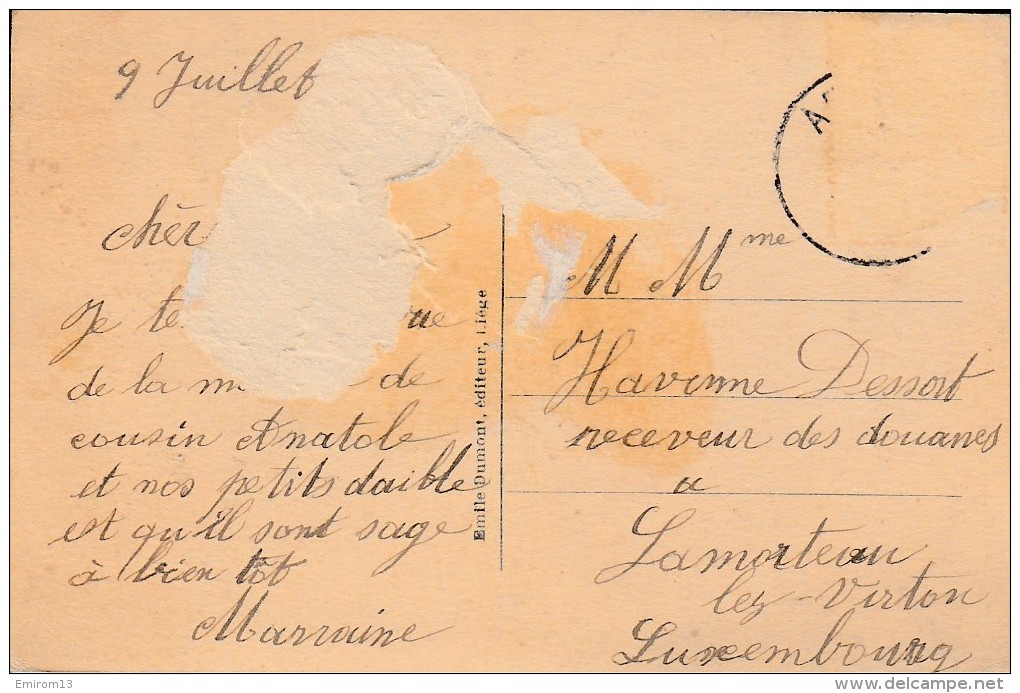 9 Juillet
chèr
Je te
de la m de
cousin Anatole
et nos petits daible
est qu'il sont sage
à bien tôt
Marraine
Emile Dumont, éditeur, Liége
M Mme
Havenne Dessort
receveur des douanes
a
Lamorteau
lez-Virton
Luxembourg
Emirom13
delcampe.net